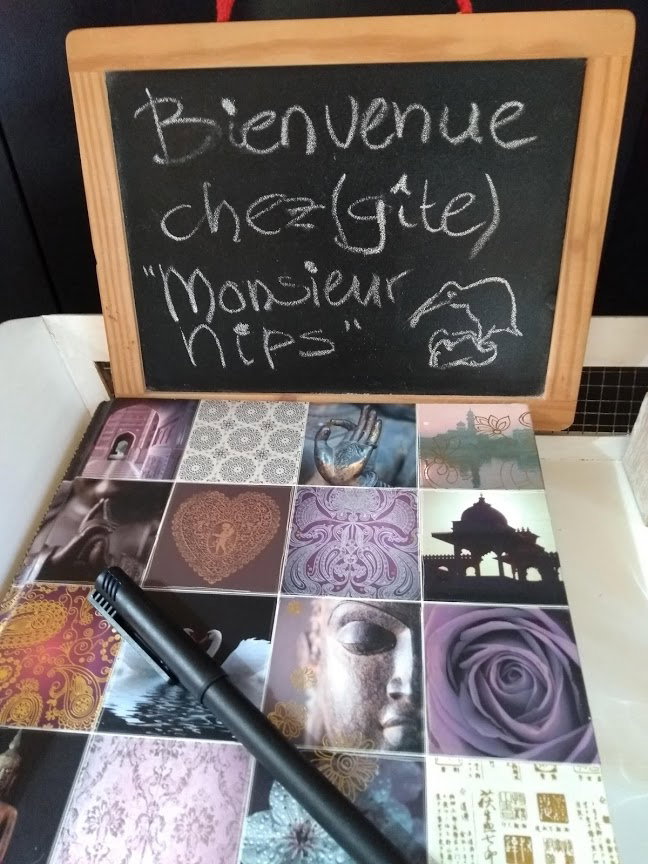 Bienvenue
chez (gîte)
"Monsieur
nips"